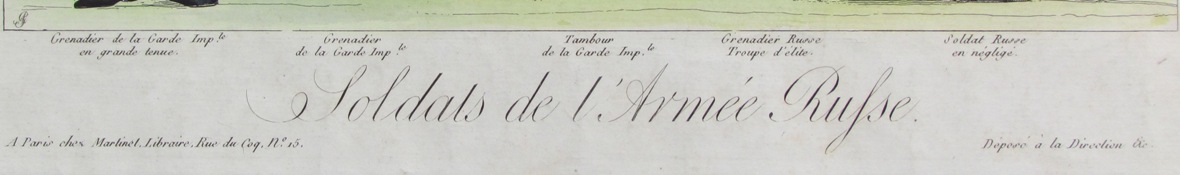 Grenadier de la Garde Imp.le
en grande tenue.
Grenadier
de la Garde Imp.le
Tambour
de la Garde Imp.le
Grenadier Russe
Troupe d'élite.
Soldat Russe
en négligé.
Soldats de l'Armée Ruſse.
A Paris chez Martinet, Libraire, Rue du Coq, N.º 15.
Déposé à la Direction &c.